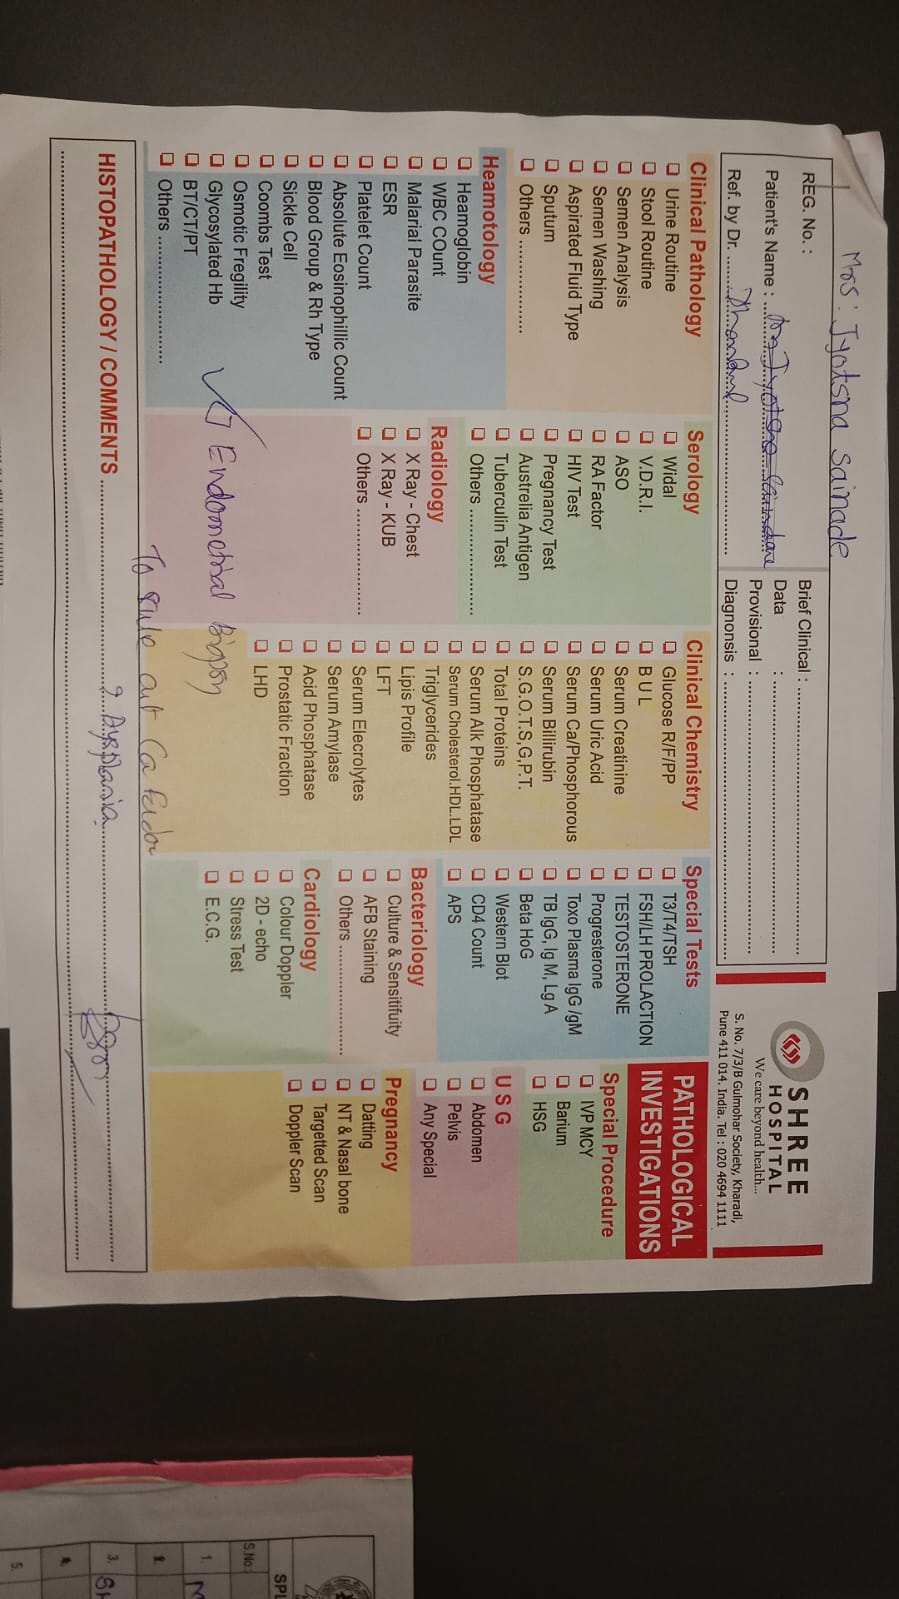 Mrs: Jyotsna Sainade
REG. No. :
Patient's Name :
Ref. by Dr.
Brief Clinical :
Data :
Provisional :
Diagnonsis :
SHREE
HOSPITAL
We care beyond health...
S. No. 7/3/B Gulmohar Society, Kharadi,
Pune 411 014. India. Tel : 020 4694 1111
Clinical Pathology
Urine Routine
Stool Routine
Semen Analysis
Semen Washing
Aspirated Fluid Type
Sputum
Others ...............
Heamotology
Heamoglobin
WBC COunt
Malarial Parasite
ESR
Platelet Count
Absolute Eosinophillio Count
Blood Group & Rh Type
Sickle Cell
Coombs Test
Osmotic Fregility
Glycosylated Hb
BT/CT/PT
Others ....................
Serology
Widal
V.D.R.I.
ASO
RA Factor
HIV Test
Pregnancy Test
Austrelia Antigen
Tuberculin Test
Others .................
Radiology
X Ray - Chest
X Ray - KUB
Others .................
Endometrial Biopsy
Clinical Chemistry
Glucose R/F/PP
B U L
Serum Creatinine
Serum Uric Acid
Serum Ca/Phosphorous
Serum Billirubin
S.G.O.T.S,G,P.T.
Total Proteins
Serum Alk Phosphatase
Serum Cholesterol.HDL.LDL
Triglycerides
Lipis Profile
LFT
Serum Elecrolytes
Serum Amylase
Acid Phosphatase
Prostatic Fraction
LHD
Special Tests
T3/T4/TSH
FSH/LH PROLACTION
TESTOSTERONE
Progresterone
Toxo Plasma IgG /gM
TB IgG, Ig M, Lg A
Beta HoG
Western Blot
CD4 Count
APS
Bacteriology
Culture & Sensitifuity
AFB Staining
Others ................
Cardiology
Colour Doppler
2D - echo
Stress Test
E.C.G.
PATHOLOGICAL
INVESTIGATIONS
Special Procedure
IVP MCY
Barium
HSG
U S G
Abdomen
Pelvis
Any Special
Pregnancy
Datting
NT & Nasal bone
Targetted Scan
Doppler Scan
To rule out Ca
HISTOPATHOLOGY / COMMENTS ? dysplasia
S.No.
SPL
1.
2.
3.
4.
5.